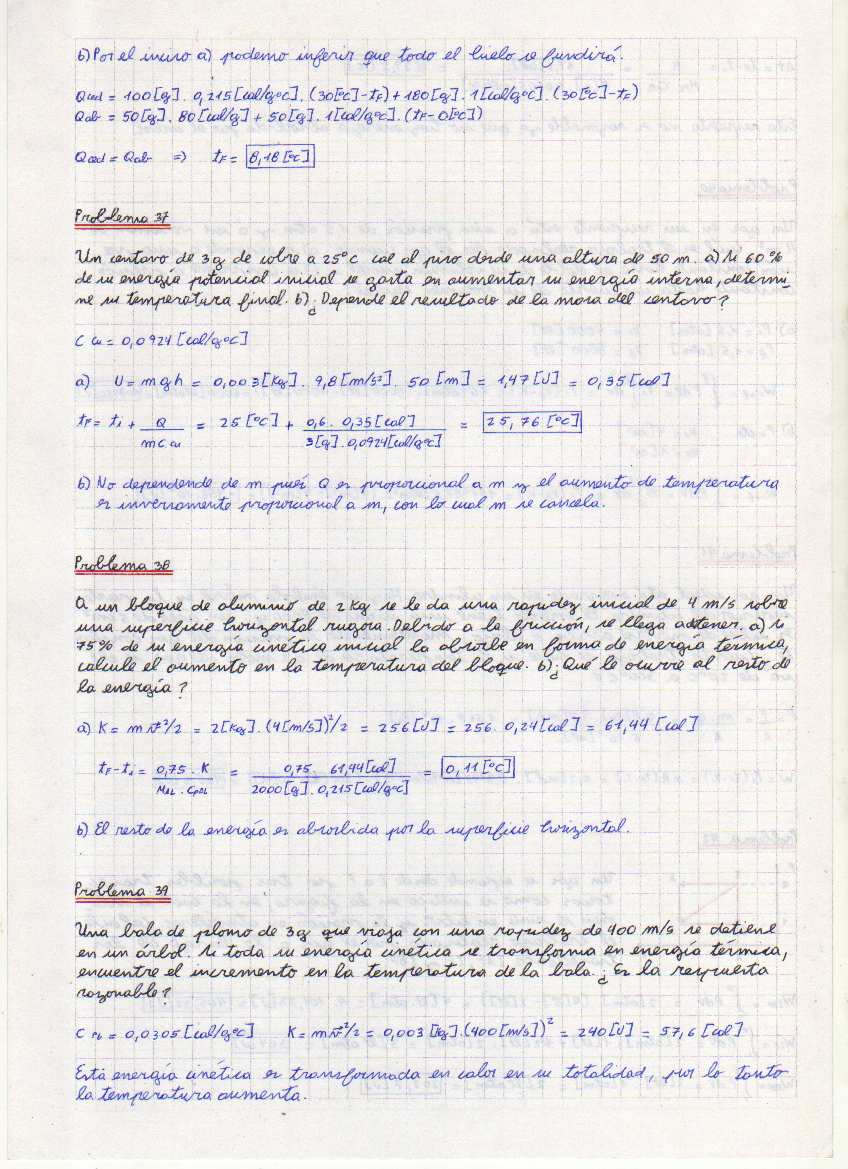 b) Por el inciso a) podemo inferir que todo el hielo se fundirá.
Qced = 100 [g] . 0,215 [cal/gºC] . (30[ºC]-tF) + 180[g] . 1[cal/gºC] . (30[ºC]-tF)
Qab = 50[g] . 80[cal/g] + 50[g] . 1[cal/gºC] . (tF-0[ºC])
Qced = Qab => tF = 8,18 [ºC]
Problema 37
Un centavo de 3g de cobre a 25°C cae al piso desde una altura de 50 m. a) Si 60%
de su energía potencial inicial se gasta en aumentar su energía interna, determi-
ne su temperatura final. b) ¿Depende el resultado de la masa del centavo?
C Cu = 0,0924 [cal/gºC]
a) U = m g h = 0,003[Kg] . 9,8[m/s²] . 50 [m] = 1,47 [J] = 0,35 [cal]
tF = t1 + Q / m C Cu = 25 [ºC] + 0,6 . 0,35 [cal] / 3[g] . 0,0924[cal/gºC] = 25,76 [ºC]
b) No dependende de m pués Q es proporcional a m y el aumento de temperatura
es inversamente proporcional a m, con lo cual m se cancela.
Problema 38
A un bloque de aluminio de 2 kg se le da una rapidez inicial de 4 m/s sobre
una superficie horizontal rugosa. Debido a la fricción, se llega a detener. a) Si
75% de su energía cinética inicial la absorbe en forma de energía térmica,
calcule el aumento en la temperatura del bloque. b) ¿Qué le ocurre al resto de
la energía?
a) K = m v²/2 = 2[Kg] . (4[m/s])²/2 = 256 [J] = 256 . 0,24 [cal] = 61,44 [cal]
tF - t1 = 0,75 . K / MAL . CPAL = 0,75 . 61,44 [cal] / 2000 [g] . 0,215 [cal/gºC] = 0,11 [ºC]
b) El resto de la energía es absorbida por la superficie horizontal.
Problema 39
Una bala de plomo de 3g que viaja con una rapidez de 400 m/s se detiene
en un árbol. Si toda su energía cinética se transforma en energía térmica,
encuentre el incremento en la temperatura de la bala. ¿Es la respuesta
razonable?
C Pb = 0,0305 [cal/gºC] K = m v²/2 = 0,003 [Kg] . (400 [m/s])² = 240 [J] = 57,6 [cal]
Está energía cinética es transformada en calor en su totalidad, por lo tanto
la temperatura aumenta.